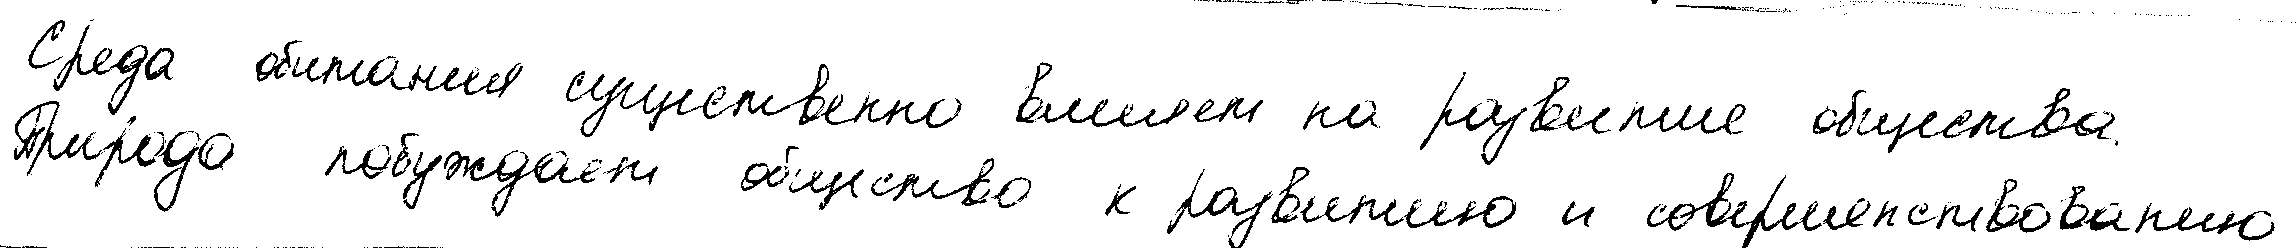 Среда обитания существенно влияет на развитие общества.
Природа побуждает общество к развитию и совершенствованию